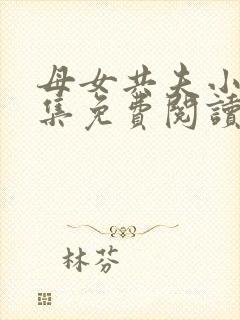 母女共夫小
集免費閱讀
林芬